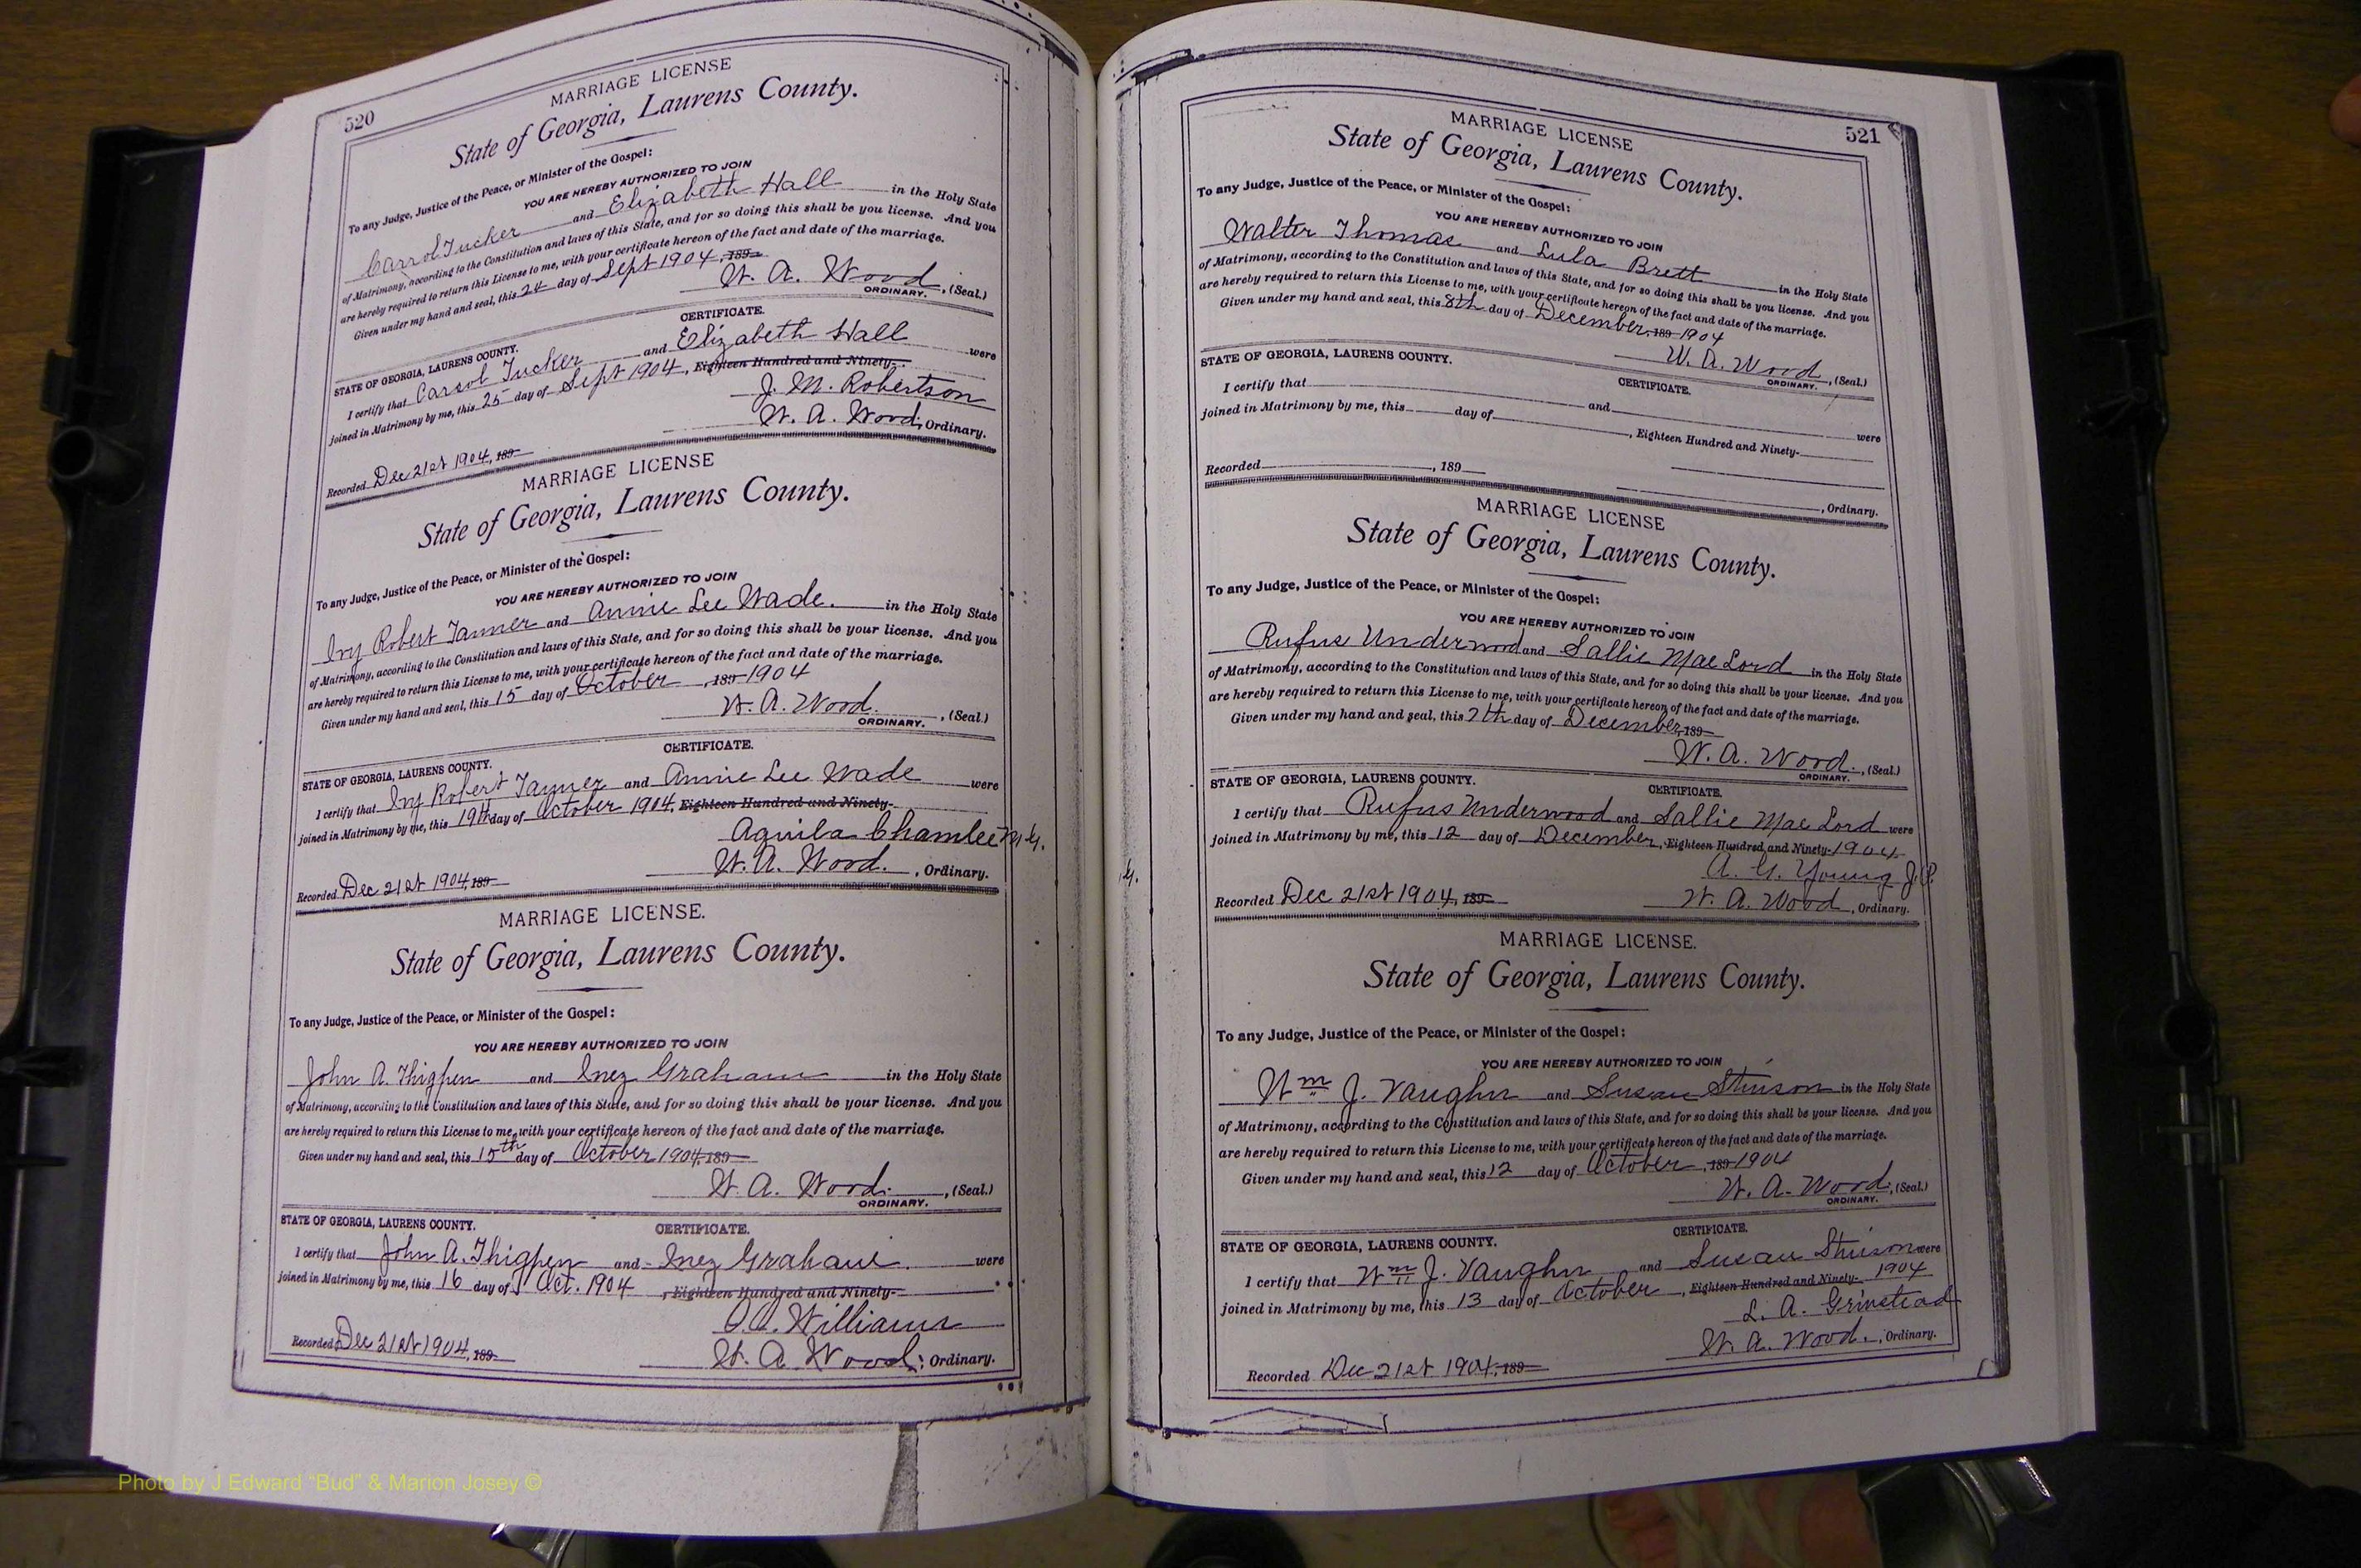 520
MARRIAGE LICENSE
State of Georgia, Laurens County.
To any Judge, Justice of the Peace, or Minister of the Gospel:
YOU ARE HEREBY AUTHORIZED TO JOIN
Carrol Tucker and Elizabeth Hall in the Holy State
of Matrimony, according to the Constitution and laws of this State, and for so doing this shall be you license. And you
are hereby required to return this License to me, with your certificate hereon of the fact and date of the marriage.
Given under my hand and seal, this 24 day of Sept 1904, 189
W. A. Wood, (Seal.)
ORDINARY.
CERTIFICATE.
STATE OF GEORGIA, LAURENS COUNTY.
I certify that Carrol Tucker and Elizabeth Hall were
joined in Matrimony by me, this 25 day of Sept 1904, Eighteen Hundred and Ninety-
J. M. Robertson
W. A. Wood, Ordinary.
Recorded Dec 21st 1904, 189
MARRIAGE LICENSE
State of Georgia, Laurens County.
To any Judge, Justice of the Peace, or Minister of the Gospel:
YOU ARE HEREBY AUTHORIZED TO JOIN
Ivy Robert Tanner and Annie Lee Wade. in the Holy State
of Matrimony, according to the Constitution and laws of this State, and for so doing this shall be your license. And you
are hereby required to return this License to me, with your certificate hereon of the fact and date of the marriage.
Given under my hand and seal, this 15 day of October, 189 1904
W. A. Wood., (Seal.)
ORDINARY.
CERTIFICATE.
STATE OF GEORGIA, LAURENS COUNTY.
I certify that Ivy Robert Tanner and Annie Lee Wade were
joined in Matrimony by me, this 19th day of October 1904, Eighteen Hundred and Ninety-
Aquila Chamlee M.G.
W. A. Wood., Ordinary.
Recorded Dec 21st 1904, 189
MARRIAGE LICENSE.
State of Georgia, Laurens County.
To any Judge, Justice of the Peace, or Minister of the Gospel:
YOU ARE HEREBY AUTHORIZED TO JOIN
John A. Thigpen and Inez Graham in the Holy State
of Matrimony, according to the Constitution and laws of this State, and for so doing this shall be your license. And you
are hereby required to return this License to me, with your certificate hereon of the fact and date of the marriage.
Given under my hand and seal, this 15th day of October 1904, 189
W. A. Wood., (Seal.)
ORDINARY.
STATE OF GEORGIA, LAURENS COUNTY. CERTIFICATE.
I certify that John A. Thigpen and Inez Graham. were
joined in Matrimony by me, this 16 day of Oct. 1904, Eighteen Hundred and Ninety-
Williams
W. A. Wood, Ordinary.
Recorded Dec 21st 1904, 189
521
MARRIAGE LICENSE
State of Georgia, Laurens County.
To any Judge, Justice of the Peace, or Minister of the Gospel:
YOU ARE HEREBY AUTHORIZED TO JOIN
Walter Thomas and Lula Brett in the Holy State
of Matrimony, according to the Constitution and laws of this State, and for so doing this shall be you license. And you
are hereby required to return this License to me, with your certificate hereon of the fact and date of the marriage.
Given under my hand and seal, this 8th day of December, 189 1904
W. A. Wood, (Seal.)
ORDINARY.
STATE OF GEORGIA, LAURENS COUNTY. CERTIFICATE.
I certify that and were
joined in Matrimony by me, this day of, Eighteen Hundred and Ninety-
Recorded, 189
, Ordinary.
MARRIAGE LICENSE
State of Georgia, Laurens County.
To any Judge, Justice of the Peace, or Minister of the Gospel:
YOU ARE HEREBY AUTHORIZED TO JOIN
Rufus Underwood and Sallie Mae Lord in the Holy State
of Matrimony, according to the Constitution and laws of this State, and for so doing this shall be your license. And you
are hereby required to return this License to me, with your certificate hereon of the fact and date of the marriage.
Given under my hand and seal, this 7th day of December, 189
W. A. Wood., (Seal.)
ORDINARY.
STATE OF GEORGIA, LAURENS COUNTY. CERTIFICATE.
I certify that Rufus Underwood and Sallie Mae Lord were
joined in Matrimony by me, this 12 day of December, Eighteen Hundred and Ninety- 1904
A. G. Young J.P.
Recorded Dec 21st 1904, 189 W. A. Wood, Ordinary.
MARRIAGE LICENSE.
State of Georgia, Laurens County.
To any Judge, Justice of the Peace, or Minister of the Gospel:
YOU ARE HEREBY AUTHORIZED TO JOIN
Wm J. Vaughn and Susan Stinson in the Holy State
of Matrimony, according to the Constitution and laws of this State, and for so doing this shall be your license. And you
are hereby required to return this License to me, with your certificate hereon of the fact and date of the marriage.
Given under my hand and seal, this 12 day of October, 189 1904
W. A. Wood, (Seal.)
ORDINARY.
CERTIFICATE.
STATE OF GEORGIA, LAURENS COUNTY.
I certify that Wm J. Vaughn and Susan Stinson were
joined in Matrimony by me, this 13 day of October, Eighteen Hundred and Ninety- 1904
L. A. Grinstead
W. A. Wood., Ordinary.
Recorded Dec 21st 1904, 189
Photo by J Edward "Bud" & Marion Josey ©